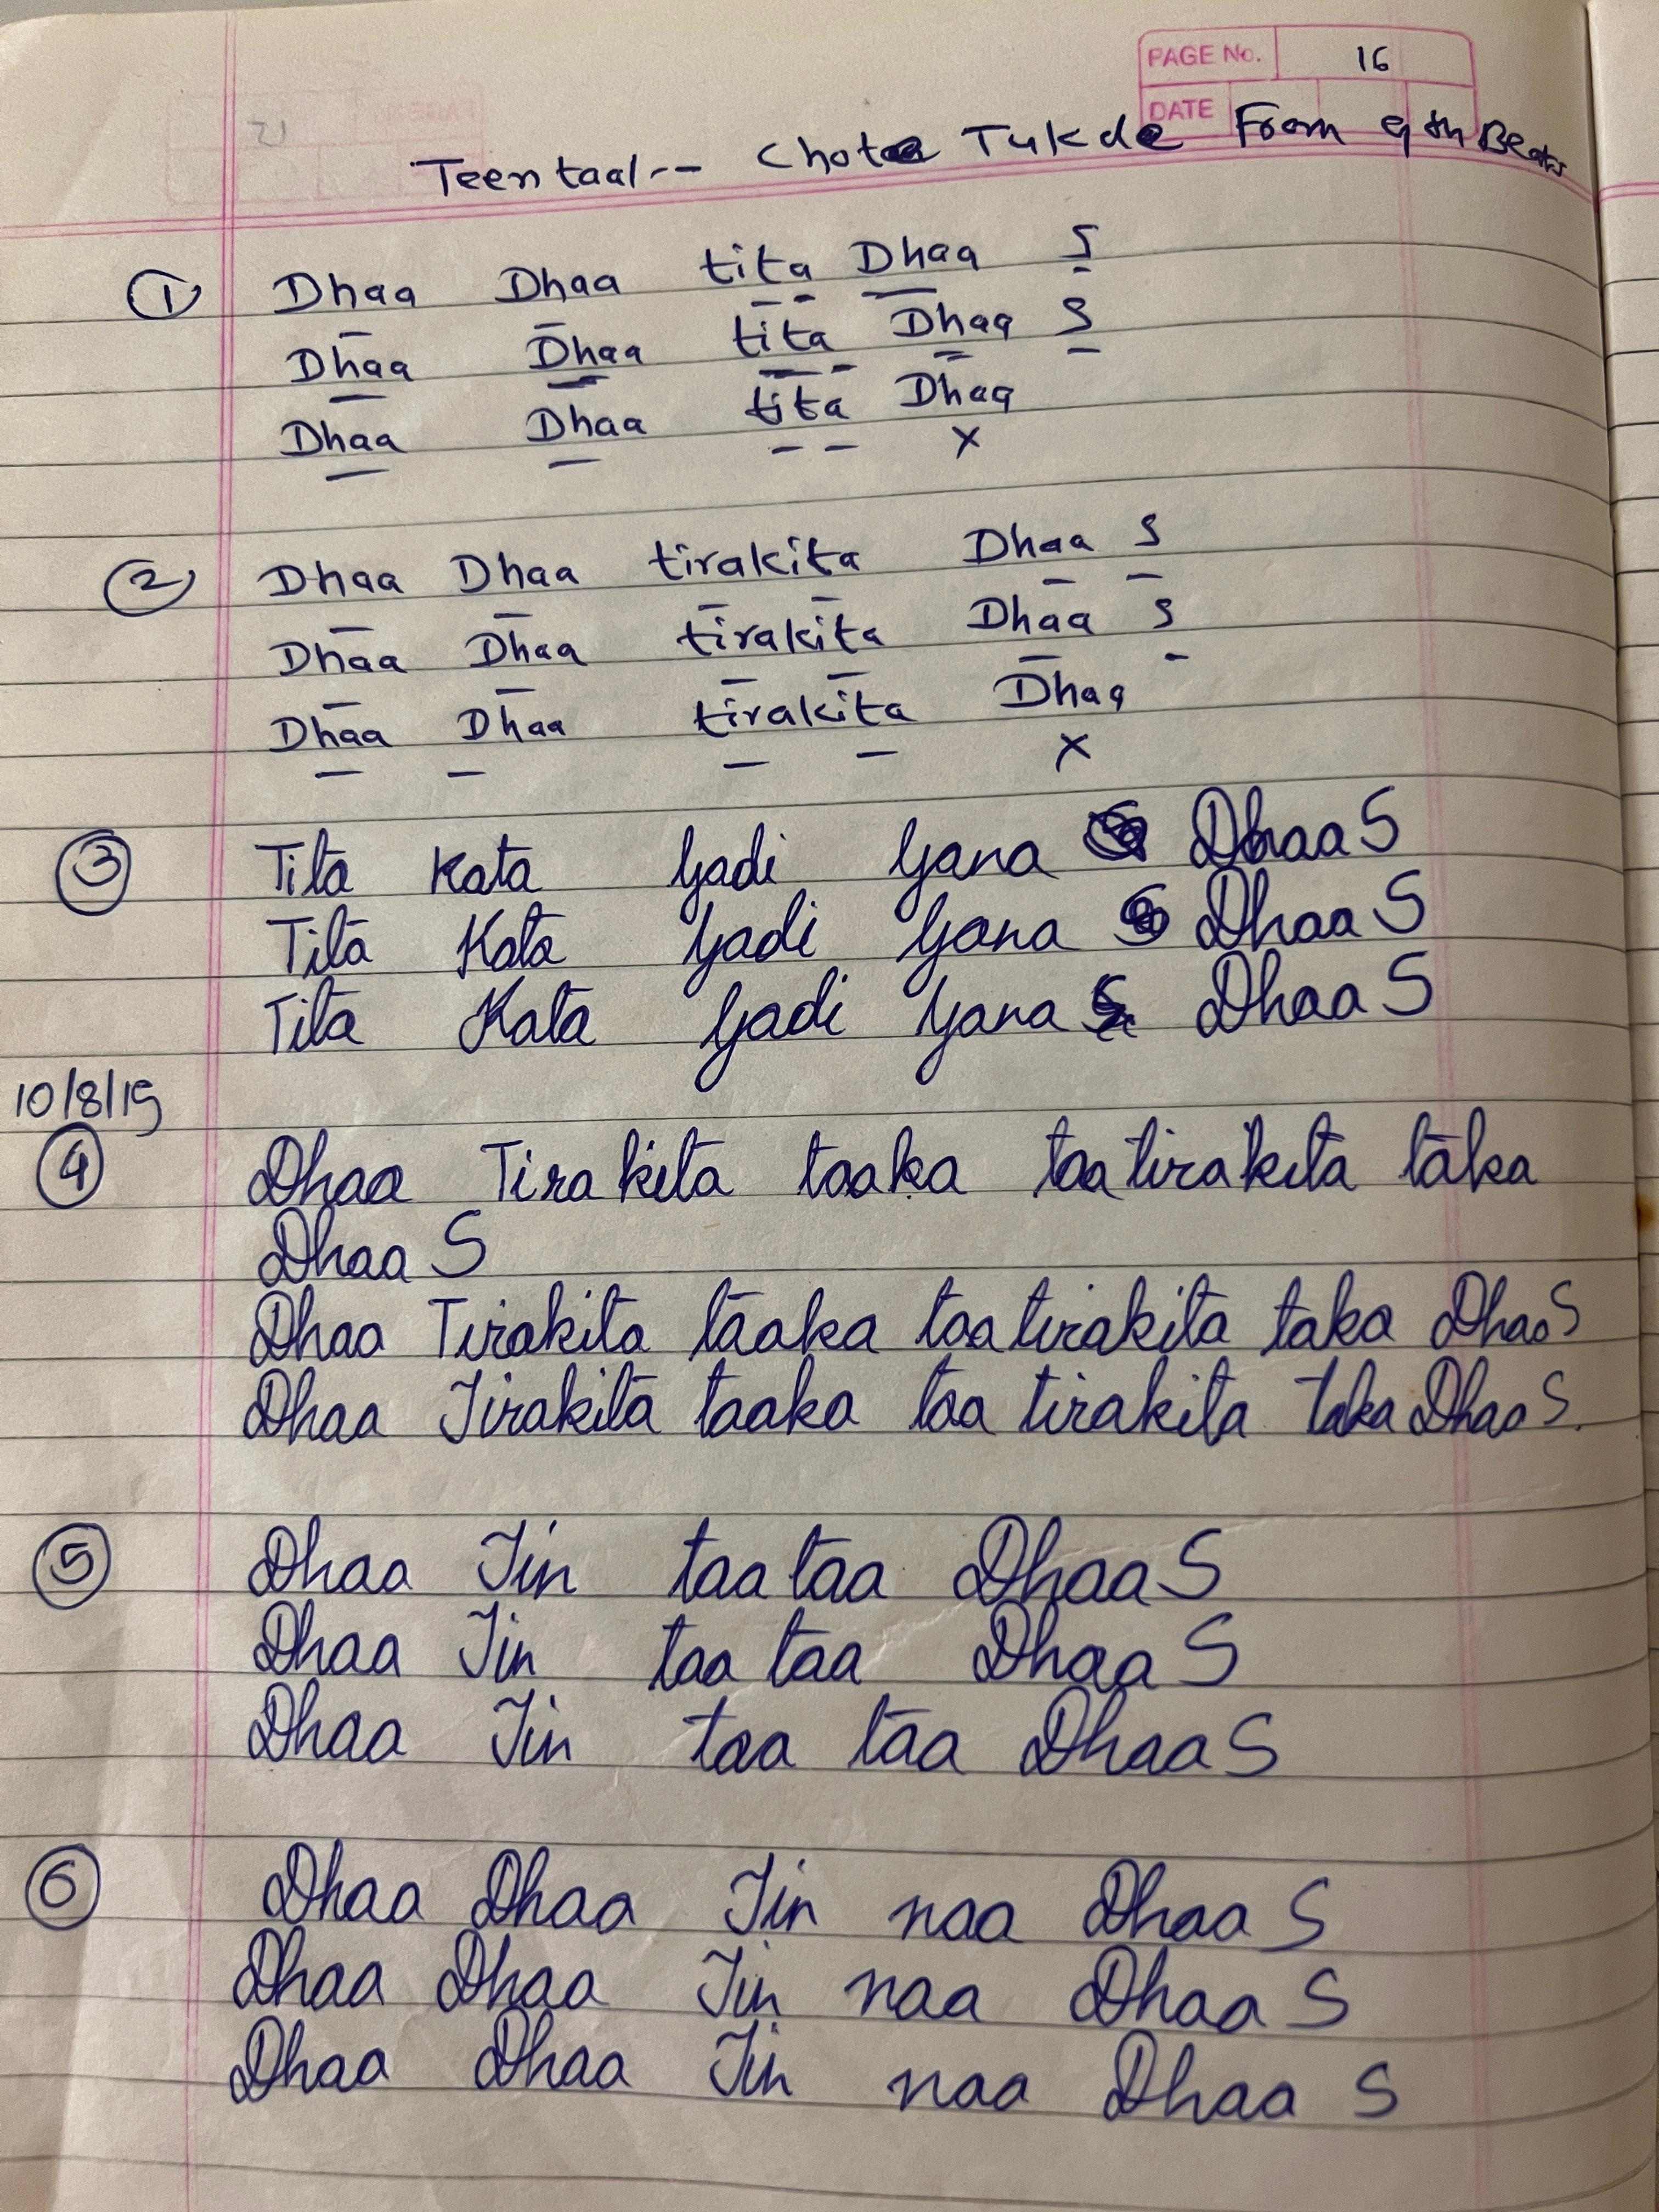 PAGE No. 16
DATE
Teentaal-- Chote Tukde From 9th Beats
① Dhaa Dhaa tita Dhaa S
Dhaa Dhaa tita Dhaa S
Dhaa Dhaa tita Dhaa
X
② Dhaa Dhaa tirakita Dhaa S
Dhaa Dhaa tirakita Dhaa S
Dhaa Dhaa tirakita Dhaa
X
③ Tita Kata Gadi Gana Dhaa S
Tita Kata Gadi Gana Dhaa S
Tita Kata Gadi Gana Dhaa S
10/8/19
④ Dhaa Tirakita taaka taatirakita taka
Dhaa S
Dhaa Tirakita taaka taatirakita taka Dhaa S
Dhaa Tirakita taaka taa tirakita taka Dhaa S.
⑤ Dhaa Tin taa taa Dhaa S
Dhaa Tin taa taa Dhaa S
Dhaa Tin taa taa Dhaa S
⑥ Dhaa Dhaa Tin naa Dhaa S
Dhaa Dhaa Tin naa Dhaa S
Dhaa Dhaa Tin naa Dhaa S